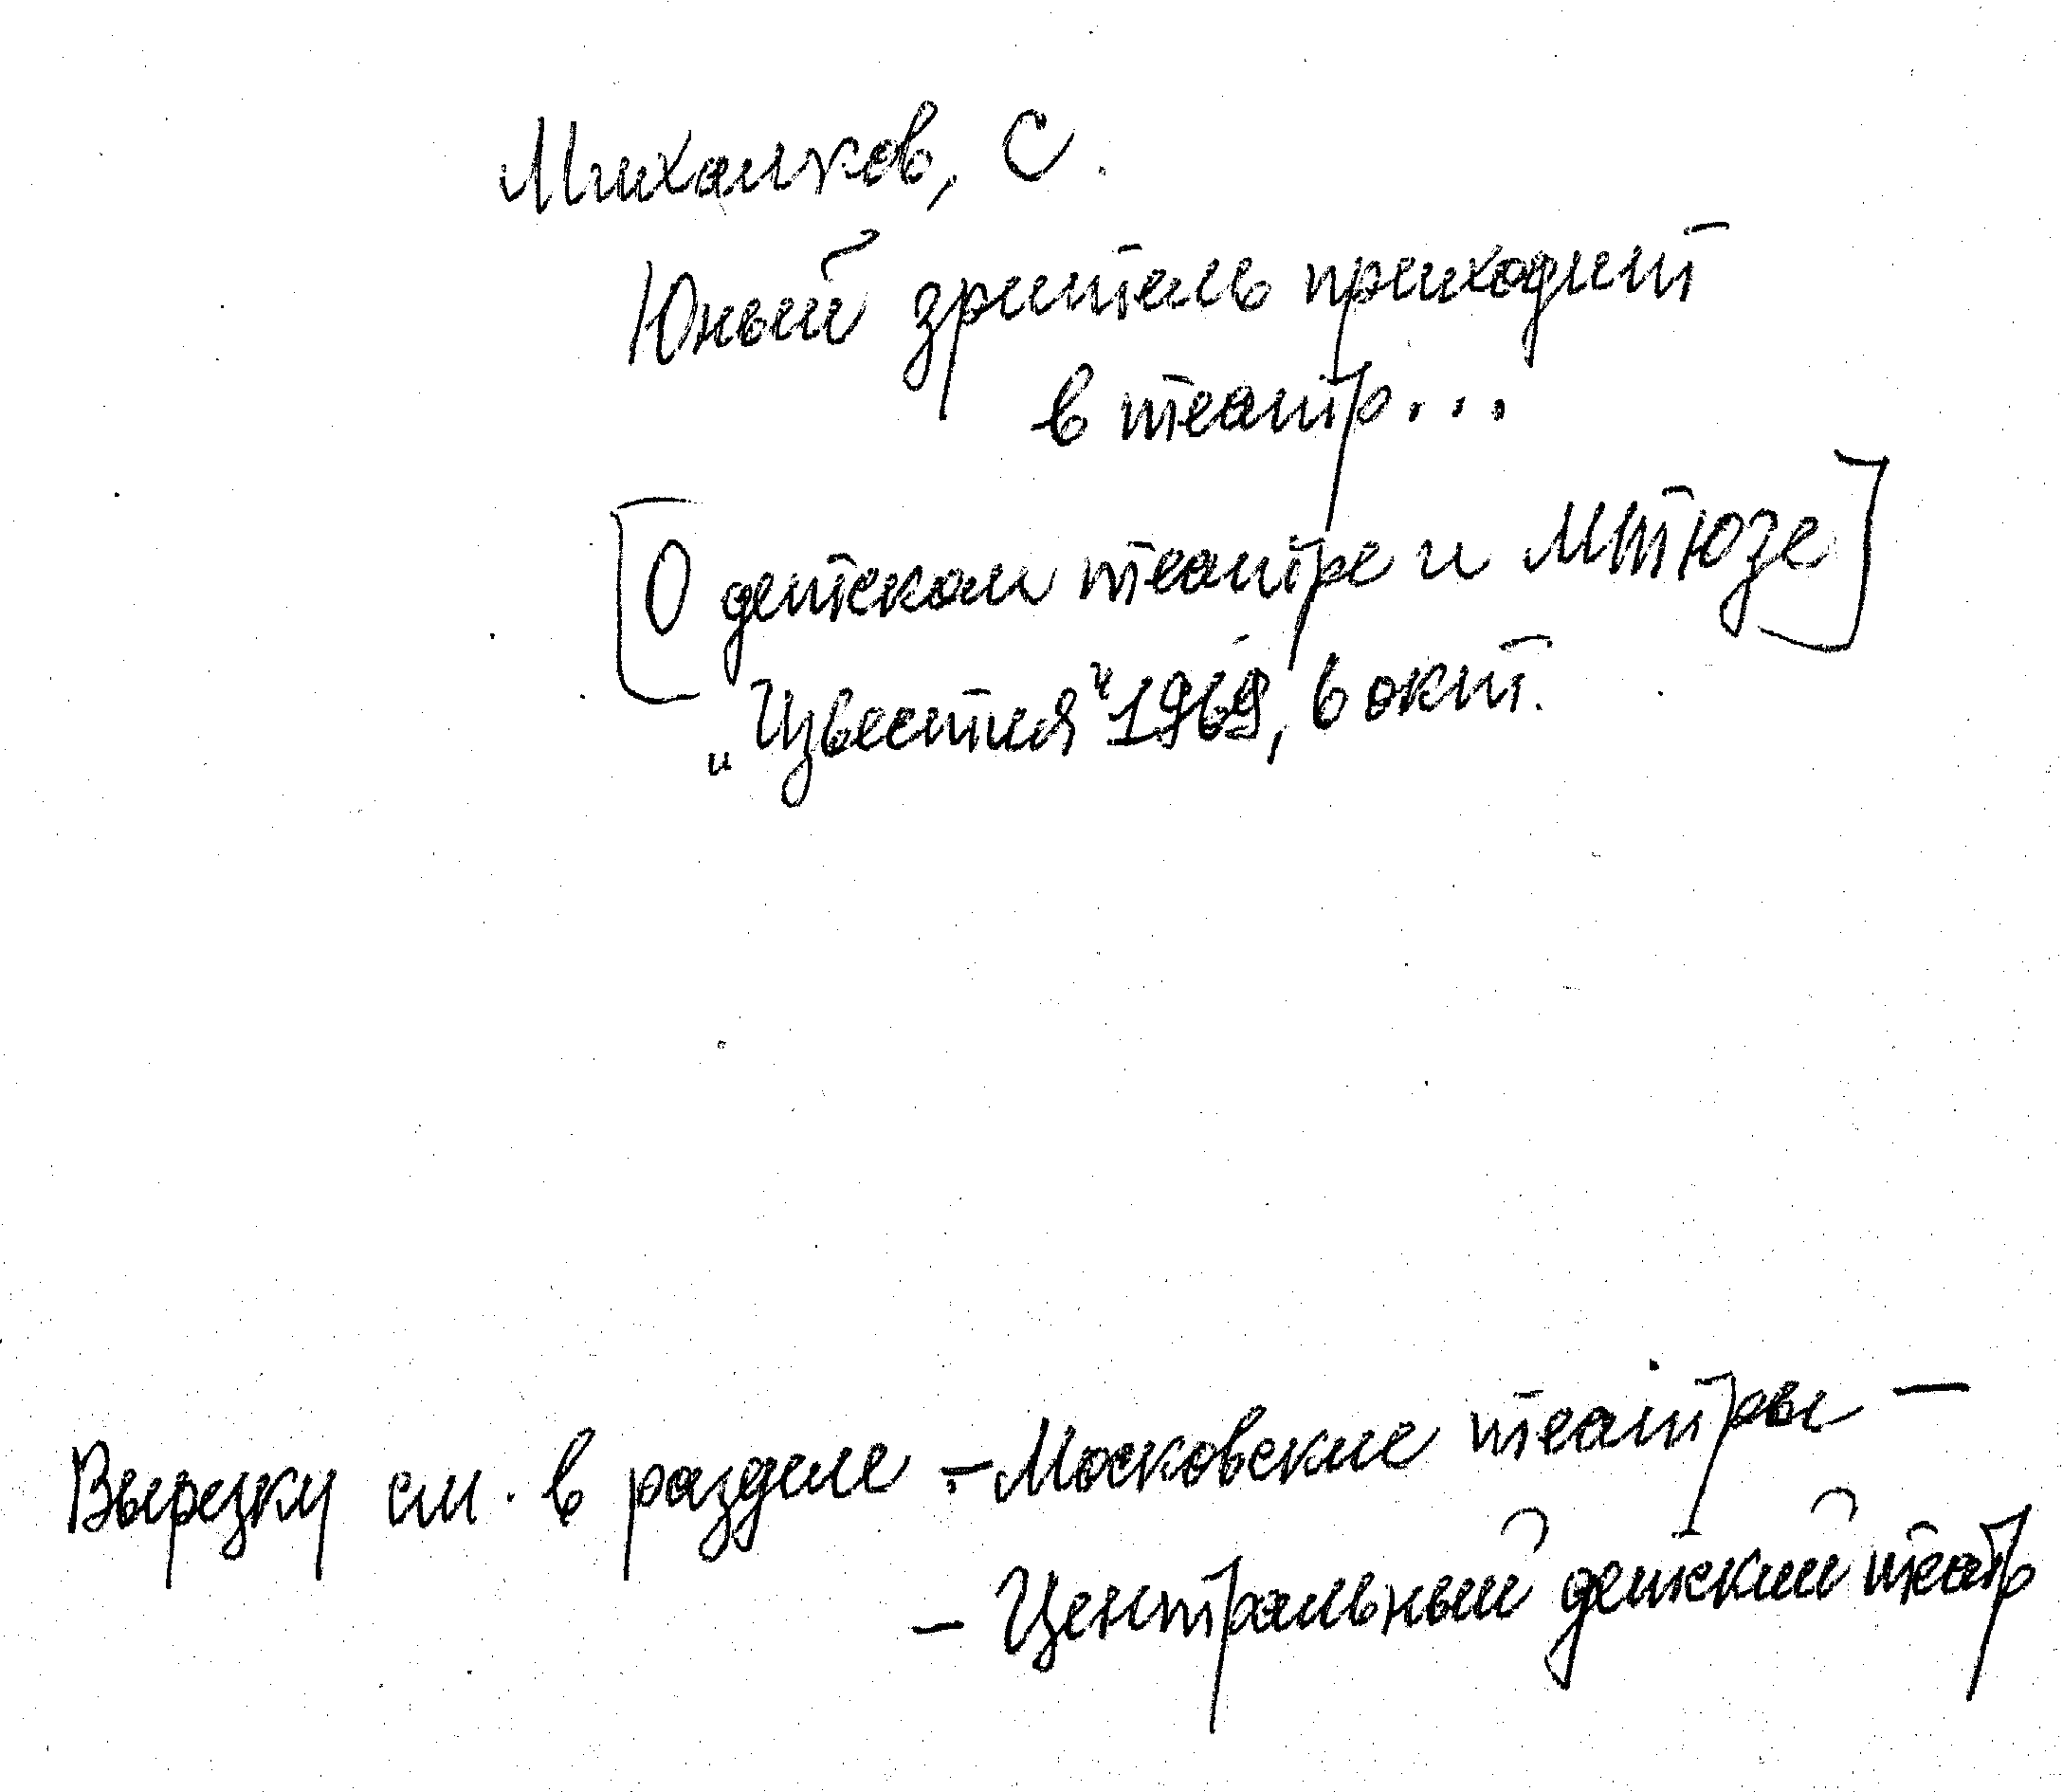 Михалков, С.
Юный зритель приходит
в театр...
[О детском театре и МТЮЗе]
„Известия“ 1969, 6 окт.
Вырезку см. в разделе – Московские театры –
– Центральный детский театр